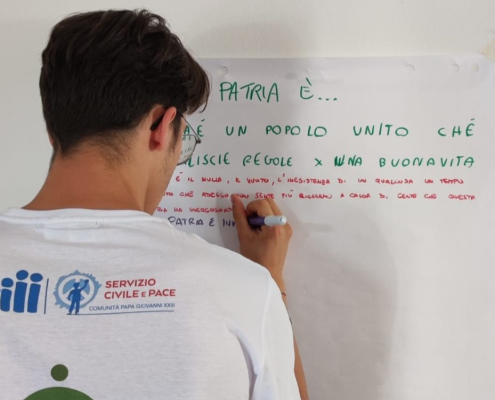 PATRIA È...
È UN POPOLO UNITO CHÉ
REGOLE X UNA BUONA VITA
È IL NULLA, IL VUOTO, L'INESISTENZA DI UN QUALCOSA UN TEMPO
CHE ADESSO NON SENTE PIÙ CALOR DI GENTE CHE QUESTA
PATRIA È
SERVIZIO
CIVILE E PACE
COMUNITÀ PAPA GIOVANNI XXIII